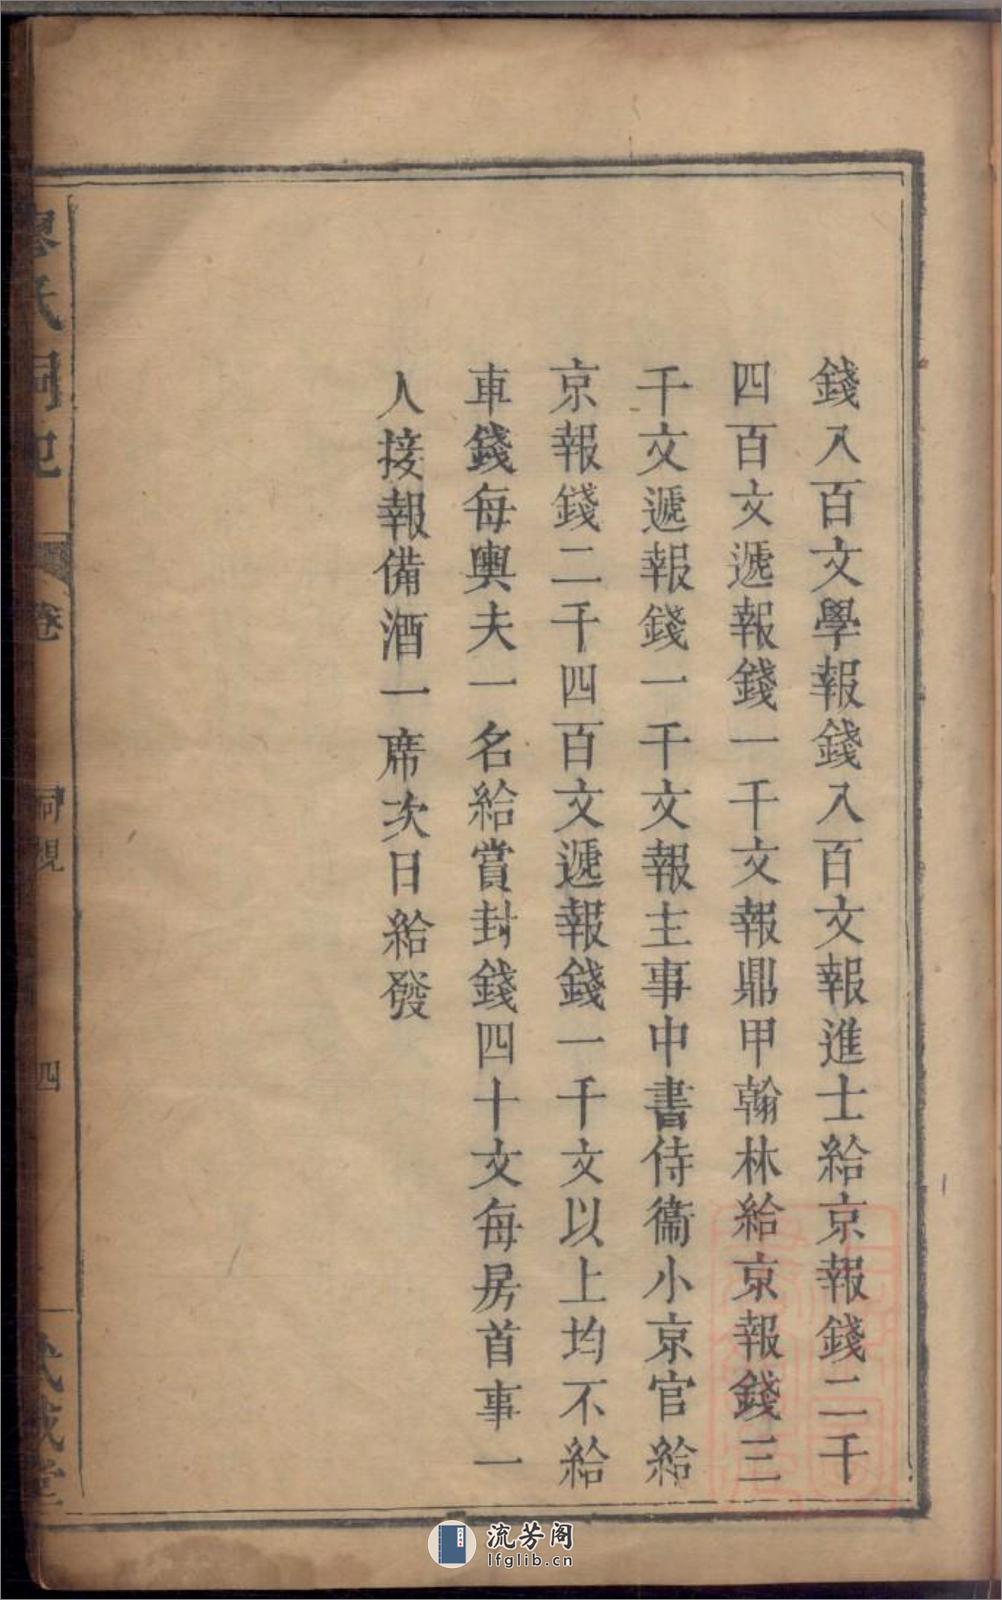 錢八百文學報錢八百文報進士給京報錢二千
四百文遞報錢一千文報鼎甲翰林給京報錢三
千文遞報錢一千文報主事中書侍衞小京官給
京報錢二千四百文遞報錢一千文以上均不給
車錢每輿夫一名給賞封錢四十文每房首事一
人接報備酒一席次日給發
氏祠記
卷
祠規
四
武威堂
流芳阁
lfglib.cn